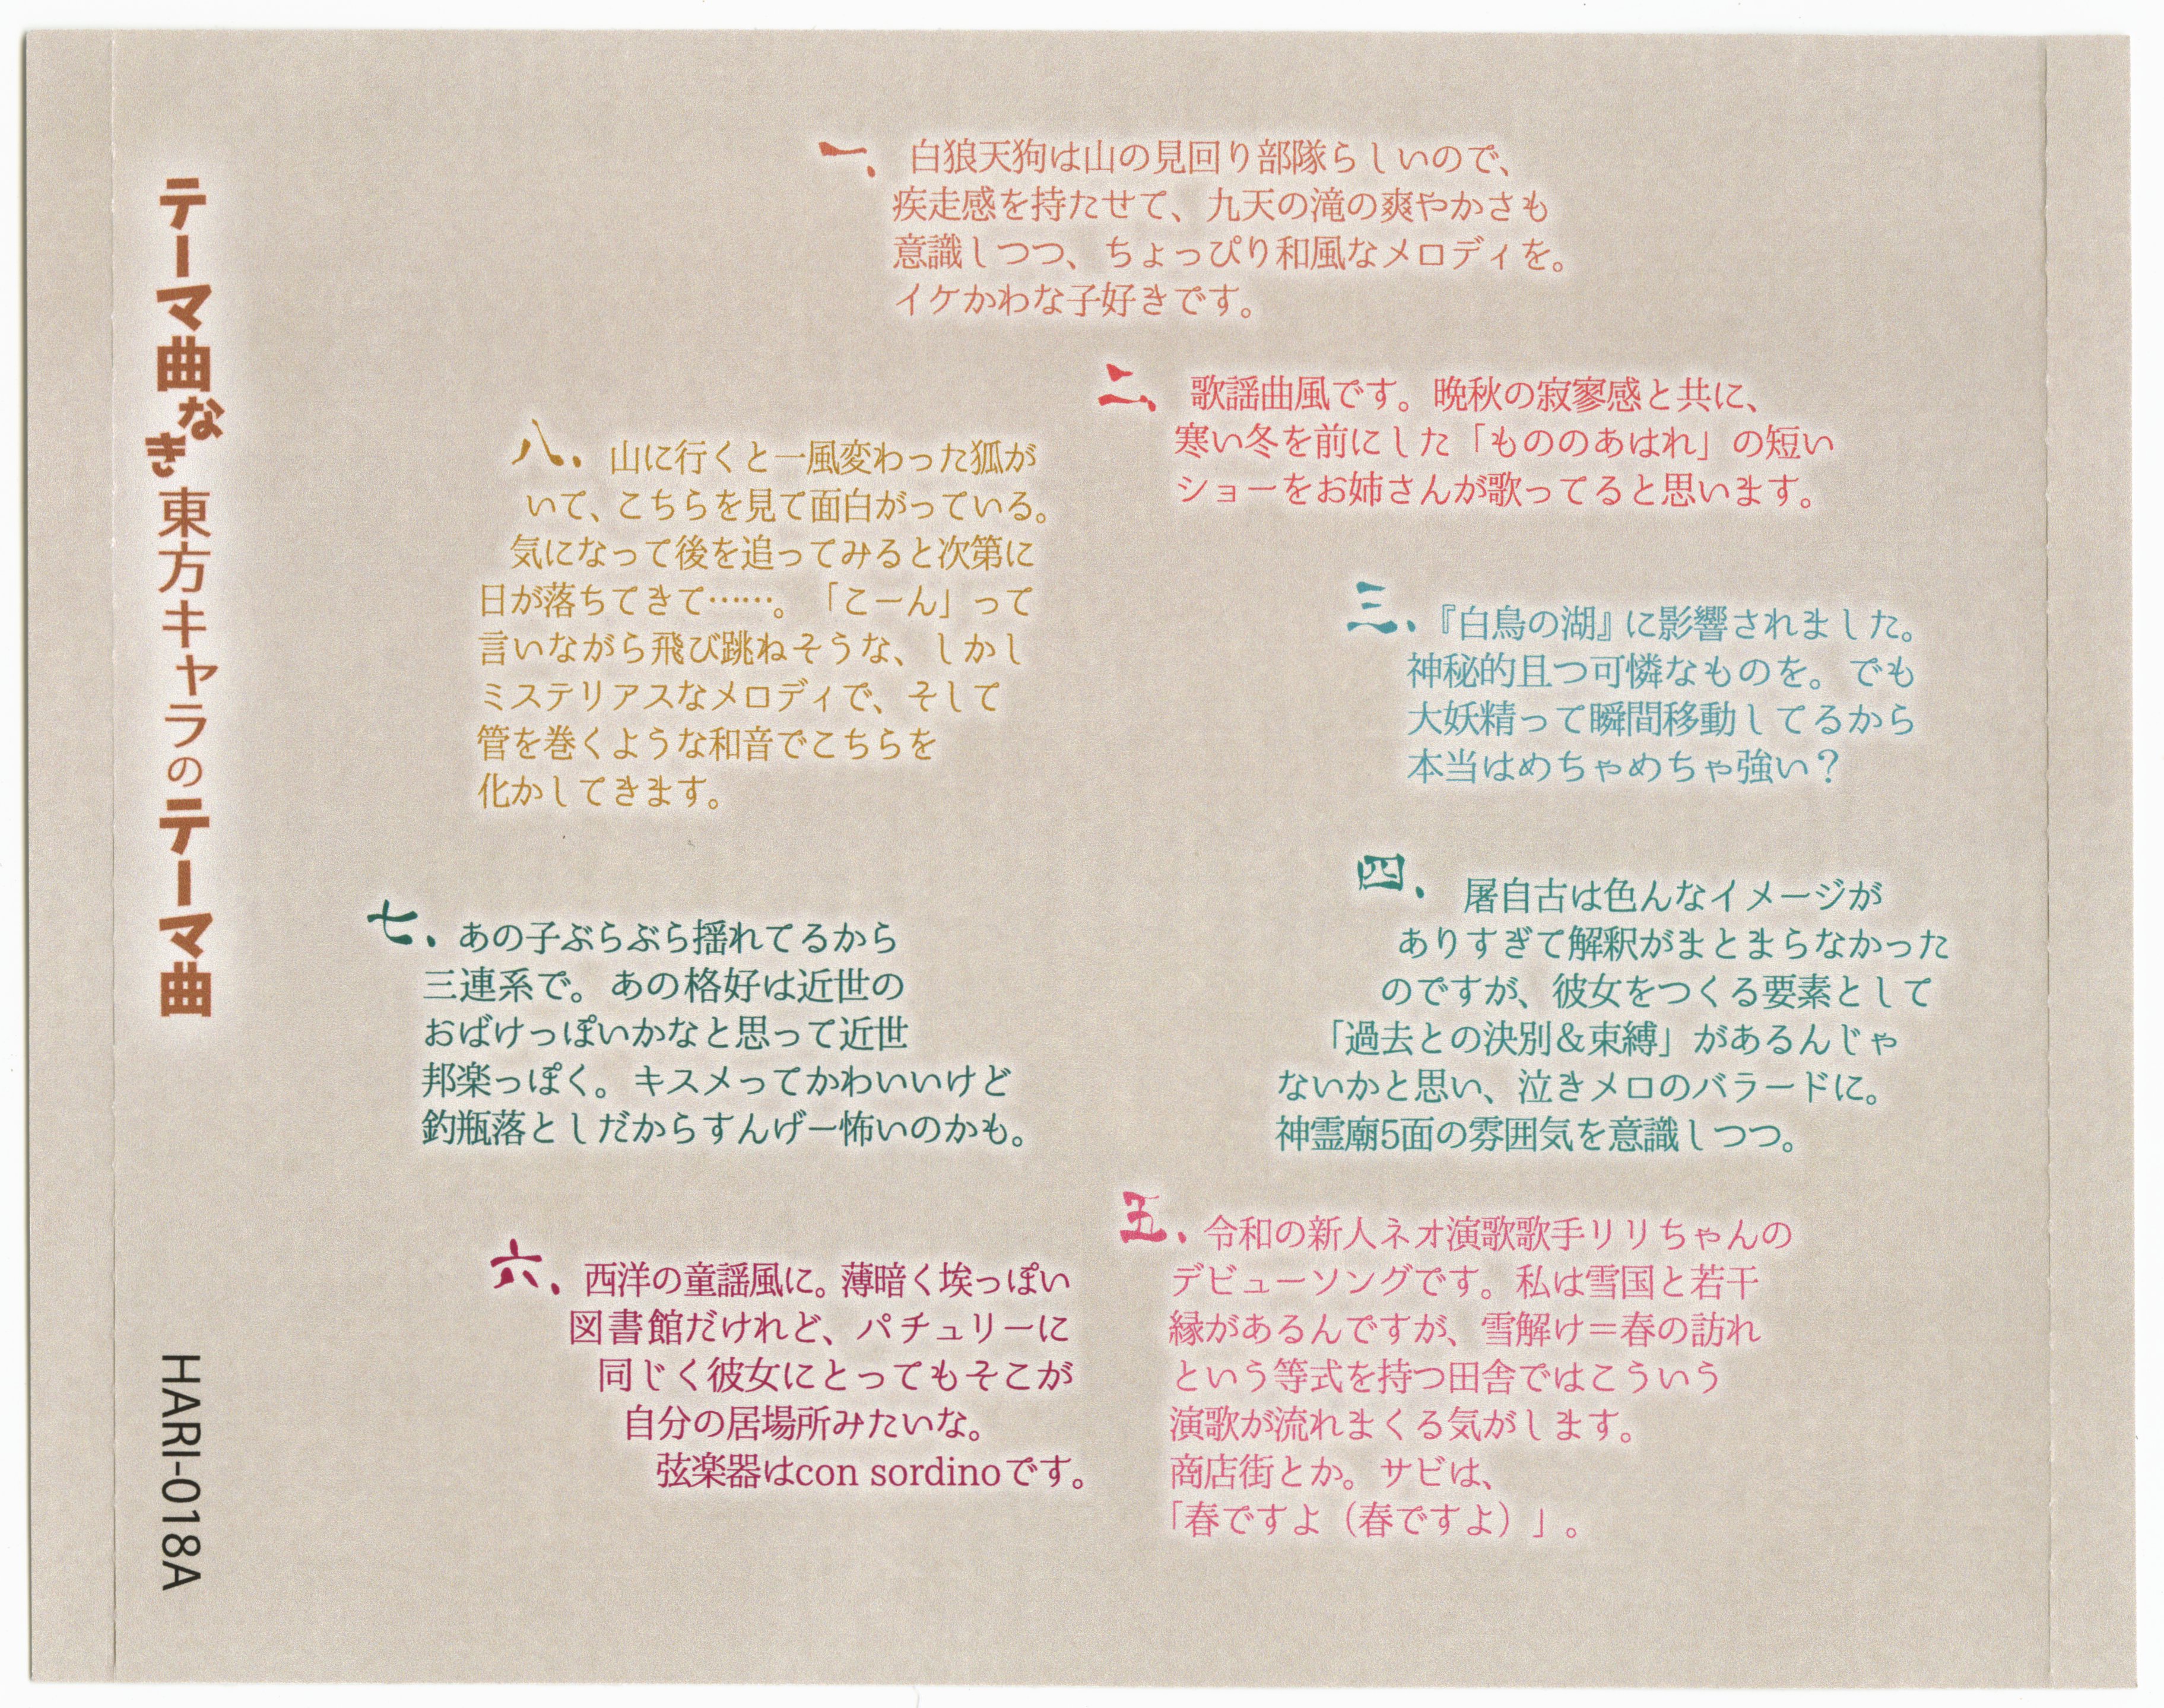 テーマ曲なき東方キャラのテーマ曲
HARI-018A
一、白狼天狗は山の見回り部隊らしいので、
疾走感を持たせて、九天の滝の爽やかさも
意識しつつ、ちょっぴり和風なメロディを。
イケかわな子好きです。
二、歌謡曲風です。晩秋の寂寥感と共に、
寒い冬を前にした「もののあはれ」の短い
ショーをお姉さんが歌ってると思います。
三、『白鳥の湖』に影響されました。
神秘的且つ可憐なものを。でも
大妖精って瞬間移動してるから
本当はめちゃめちゃ強い？
四、屠自古は色んなイメージが
ありすぎて解釈がまとまらなかった
のですが、彼女をつくる要素として
「過去との決別＆束縛」があるんじゃ
ないかと思い、泣きメロのバラードに。
神霊廟5面の雰囲気を意識しつつ。
五、令和の新人ネオ演歌歌手リリちゃんの
デビューソングです。私は雪国と若干
縁があるんですが、雪解け＝春の訪れ
という等式を持つ田舎ではこういう
演歌が流れまくる気がします。
商店街とか。サビは、
「春ですよ（春ですよ）」。
六、西洋の童謡風に。薄暗く埃っぽい
図書館だけれど、パチュリーに
同じく彼女にとってもそこが
自分の居場所みたいな。
弦楽器はcon sordinoです。
七、あの子ぶらぶら揺れてるから
三連系で。あの格好は近世の
おばけっぽいかなと思って近世
邦楽っぽく。キスメってかわいいけど
釣瓶落としだからすんげー怖いのかも。
八、山に行くと一風変わった狐が
いて、こちらを見て面白がっている。
気になって後を追ってみると次第に
日が落ちてきて……。「こーん」って
言いながら飛び跳ねそうな、しかし
ミステリアスなメロディで、そして
管を巻くような和音でこちらを
化かしてきます。